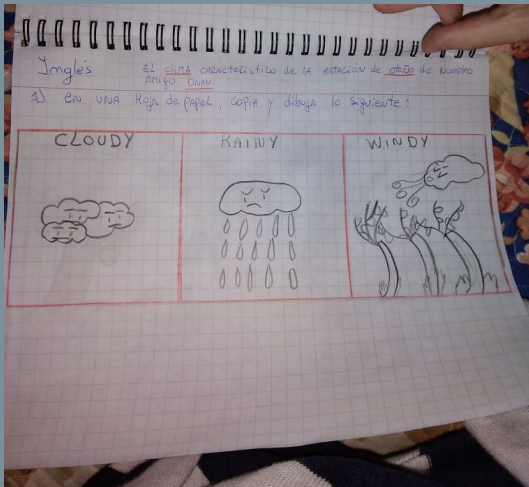 Inglés
EL CLIMA CARACTERÍSTICO DE LA ESTACIÓN DE OTOÑO DE NUESTRO
AMIGO ONAN
1) EN UNA HOJA de PAPEL, COPIA Y dibuja lo siguiente:
CLOUDY
RAINY
WINDY